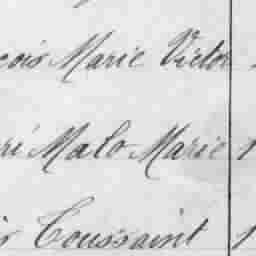 çois Marie Victor
ri Malo Marie 1
is Toussaint 1